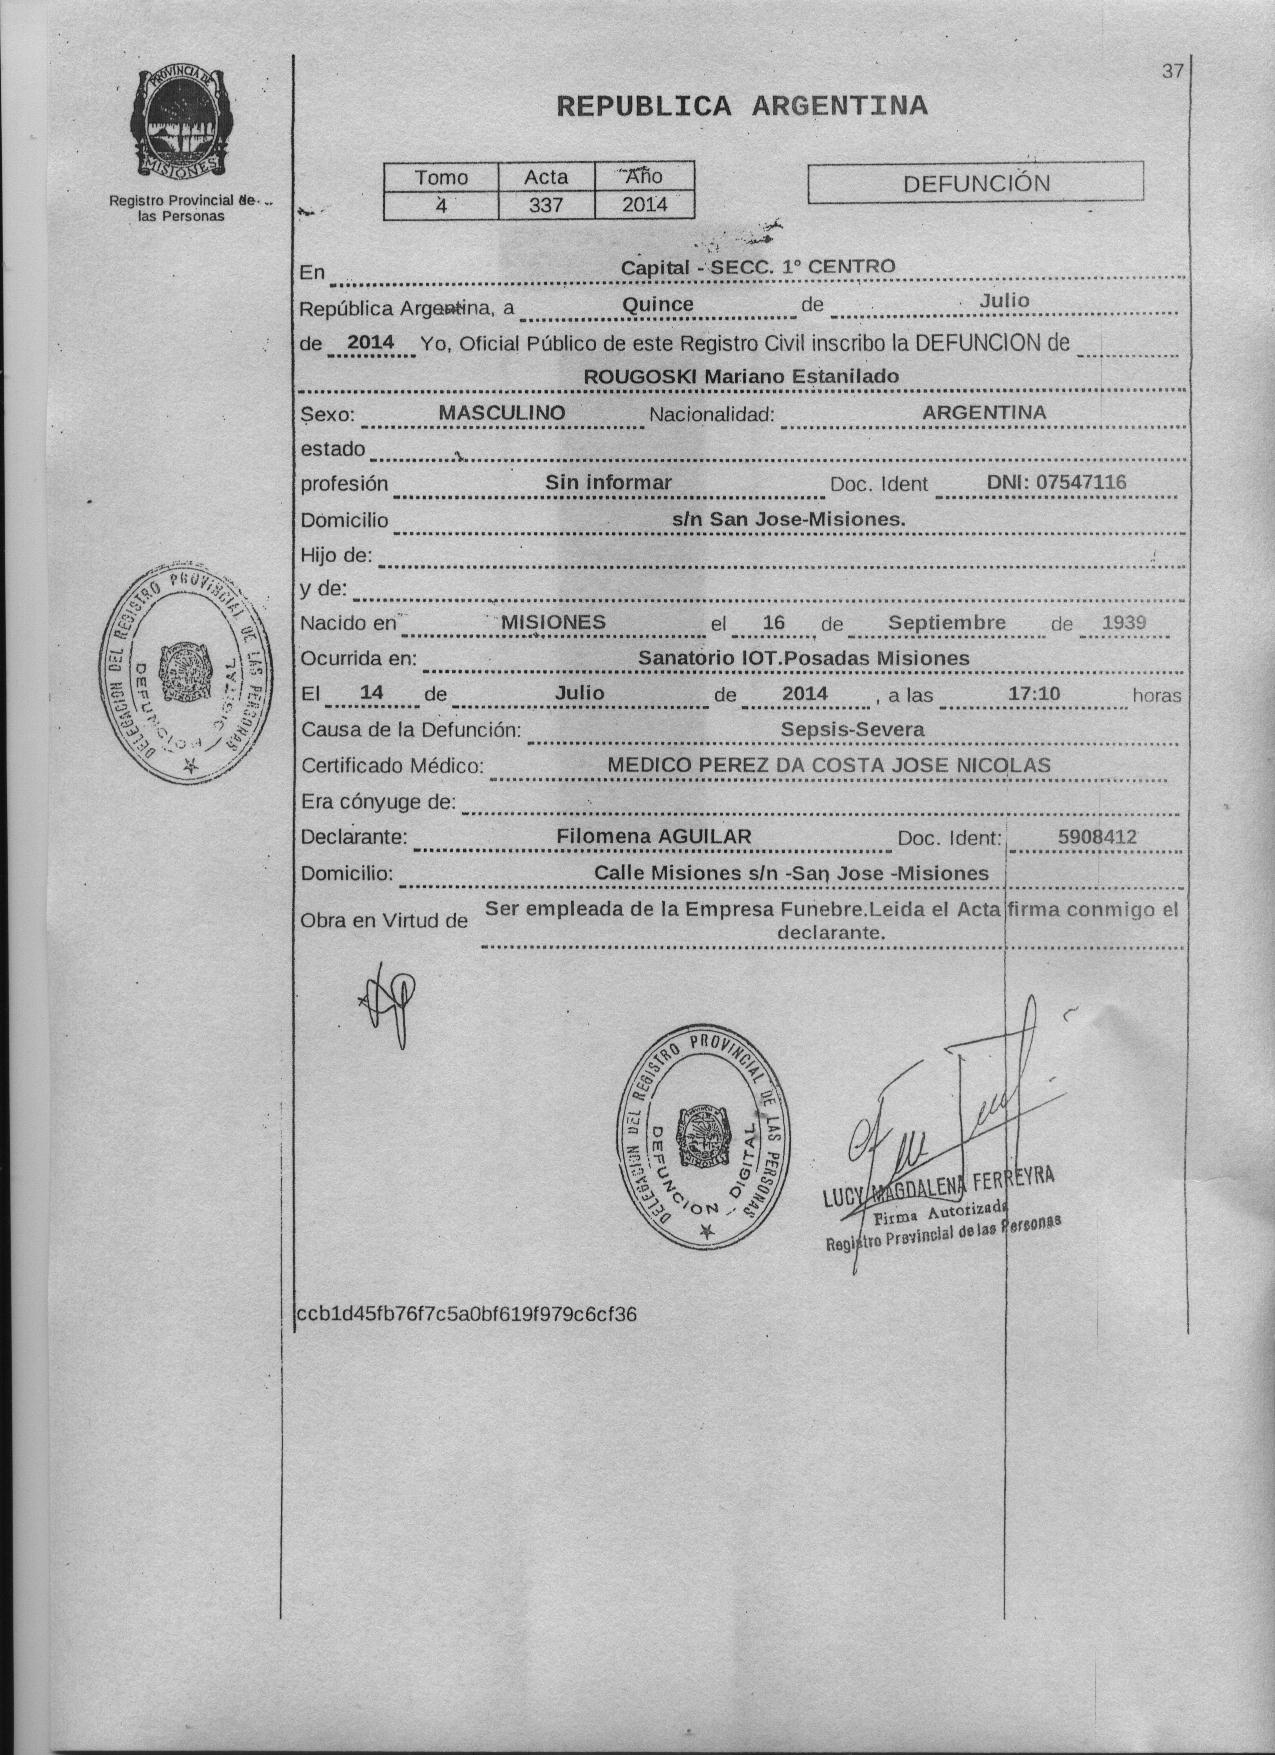 37
PROVINCIA DE
MISIONES
Registro Provincial de
las Personas
REPUBLICA ARGENTINA
Tomo Acta Año
4 337 2014
DEFUNCIÓN
En Capital - SECC. 1º CENTRO
República Argentina, a Quince de Julio
de 2014 Yo, Oficial Público de este Registro Civil inscribo la DEFUNCION de
ROUGOSKI Mariano Estanilado
Sexo: MASCULINO Nacionalidad: ARGENTINA
estado
profesión Sin informar Doc. Ident DNI: 07547116
Domicilio s/n San Jose-Misiones.
Hijo de:
y de:
Nacido en MISIONES el 16 de Septiembre de 1939
Ocurrida en: Sanatorio IOT.Posadas Misiones
El 14 de Julio de 2014 , a las 17:10 horas
Causa de la Defunción: Sepsis-Severa
Certificado Médico: MEDICO PEREZ DA COSTA JOSE NICOLAS
Era cónyuge de:
Declarante: Filomena AGUILAR Doc. Ident: 5908412
Domicilio: Calle Misiones s/n -San Jose -Misiones
Obra en Virtud de Ser empleada de la Empresa Funebre.Leida el Acta firma conmigo el
declarante.
DELEGACION DEL REGISTRO PROVINCIAL DE LAS PERSONAS
DEFUNCION DIGITAL
DELEGACION DEL REGISTRO PROVINCIAL DE LAS PERSONAS
DEFUNCION DIGITAL
LUCY MAGDALENA FERREYRA
Firma Autorizada
Registro Provincial de las Personas
ccb1d45fb76f7c5a0bf619f979c6cf36